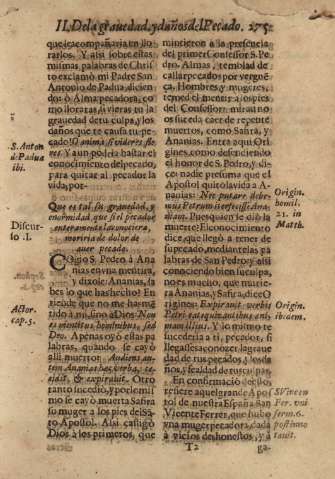 II. De la grauedad, y daños del Pecado. 275
que le acompañaria en llo
rarlos. Y assi sobre estas
mismas palabras de Chris
to exclamò mi Padre San
Antonio de Padua, dicien
do: ò Alma pecadora, co
mo lloraras, si vieras tu la
grauedad de tu culpa, y los
daños que te causa tu pe
cado! O anima, si videres fle
res. Y aun podria bastar el
conocimiento del pecado,
para quitar al pecador la
vida, por
S. Anton
de Padua
ibi.
Que es tal su grauedad, y
enormidad, que si el pecador
enteramente la conociera,
moriria de dolor de
auer pecado.
Discur
so .I.
COgiò S. Pedro à Ana
nias en vna mentira,
y dixole: Ananias, sa
bes lo que has hecho? En
tiende que no me has mẽ
tido à mi, sino à Dios: Non
es mentitus hominibus, sed
Deo. Apenas oyò estas pa
labras, quando se cayò
alli muerto: Audiens au
tem Ananias hæc verba, ce
cidit, & expirauit. Otro
tanto sucediò, y por lo mis
mo se cayò muerta Safira
su muger a los pies del Sã
to Apostol. Assi castigò
Dios à los primeros, que
Actor.
cap. 5.
mintieron à la presencia
del primer Confessor S. Pe
dro. Almas, temblad de
callar pecados por verguẽ
ça. Hombres, y mugeres,
temed el mentir à los pies
del Confessor, mirad no
os suceda caer de repente
muertos, como Safira, y
Ananias. Entra aqui Ori
gines, como defendiendo
el honor de S. Pedro, y di
ce: nadie presuma que el
Apostol quitò la vida à A
nanias: Ne putare debe
mus Petrum interfecisse Ana
niam. Pues quien le diò la
muerte? El conocimiento
dice, que llegò à tener de
su pecado, mediante las pa
labras de San Pedro; y assi
conociendo bien su culpa,
no es mucho, que murie
ra Ananias, y Safira, dice
Origin.
homil.
21. in
Matth.
Origines: Expirarunt verbis
Petri
Origin.
ibidem.
Y lo mismo te
sucederia à ti, pecador, si
llegasses à conocer la graue
dad de tus pecados, y los da
ños, y fealdad de tu culpa.
En confirmacion de esto,
refiere aquel grande Apos
tol de nuestra España San
Vicente Ferrer, que hubo
vna muger pecadora, dada
à vicios deshonestos, y à
S. Vicen
Fer. vni
serm. 6.
T 2
ga-